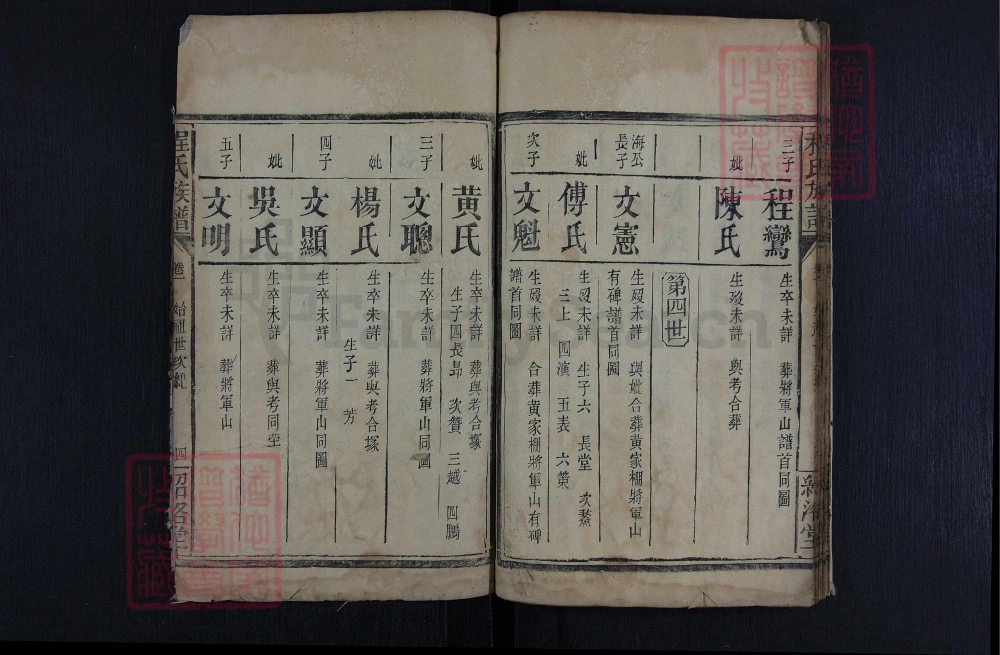 三子 程鸞 生卒未詳 葬將軍山譜首同圖
妣 陳氏 生歿未詳 與考合葬
第四世
海公長子 文憲 生歿未詳 與妣合葬黄家棚將軍山有碑譜首同圖
妣 傅氏 生歿未詳 生子六 長堂 次鰲 三上 四演 五表 六策
次子 文魁 生歿未詳 合葬黄家棚將軍山有碑譜首同圖
妣 黄氏 生卒未詳 葬與考合塚 生子四長昻 次贊 三越 四鵬
三子 文聰 生卒未詳 葬將軍山同圖
妣 楊氏 生卒未詳 葬與考合塚 生子一 芳
四子 文顯 生卒未詳 葬將軍山同圖
妣 吳氏 生卒未詳 葬與考同塋
五子 文明 生卒未詳 葬將軍山
程氏族譜 卷一 始祖世次紀 四
FamilySearch